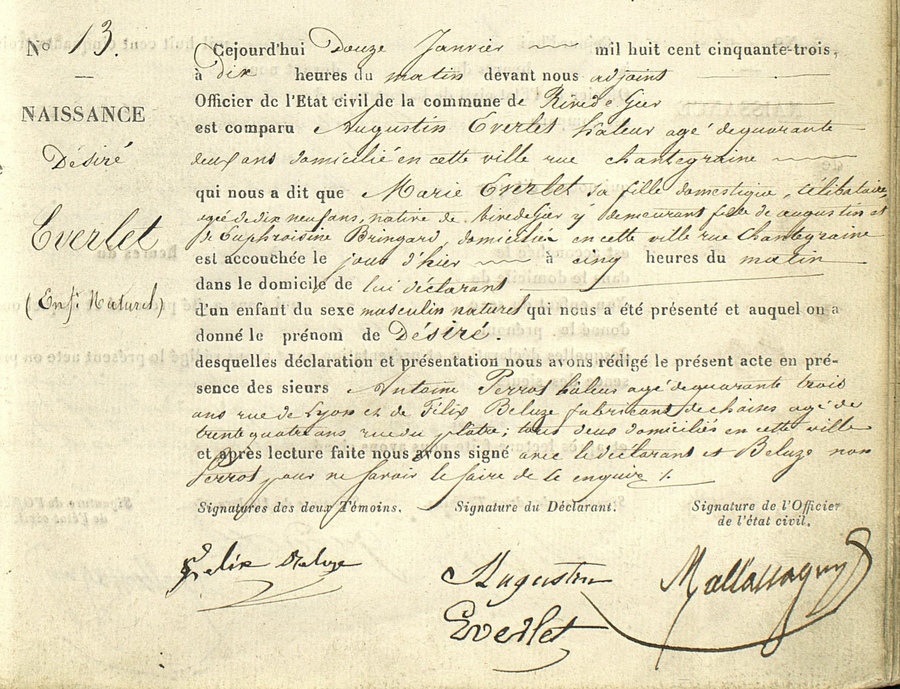 No 13.
NAISSANCE
Désiré
Everlet
(Enf. Naturel)
Cejourd'hui Douze Janvier mil huit cent cinquante-trois,
à dix heures du matin devant nous adjoint
Officier de l'Etat civil de la commune de Rivedegier
est comparu Augustin Everlet haleur agé dequarante
deux ans domicilié en cette ville rue chantegraine
qui nous a dit que Marie Everlet sa fille domestique, célibataire,
agée de dix neuf ans, native de rivedegier y demeurant fille de augustin et
de Euphroisine Bringard, domiciliés en cette ville rue chantegraine
est accouchée le jour d'hier à cinq heures du matin
dans le domicile de lui déclarant
d'un enfant du sexe masculin naturel qui nous a été présenté et auquel on a
donné le prénom de Désiré.
desquelles déclaration et présentation nous avons rédigé le présent acte en pré-
sence des sieurs Antoine Perrot haleur agé dequarante trois
ans rue de Lyon et de Félix Beluze fabricant de chaises agé de
trente quatre ans rue du plâtre; tous deux domiciliés en cette ville
et après lecture faite nous avons signé avec le déclarant et Beluze non
Perrot pour ne savoir le faire de ce enquis /.
Signatures des deux Témoins. Signature du Déclarant. Signature de l'Officier
de l'état civil.
Felix Beluze
Augustin
Everlet